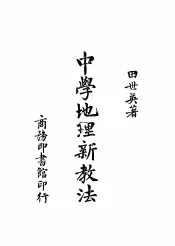 田世英著
中學地理新教法
商務印書館印行